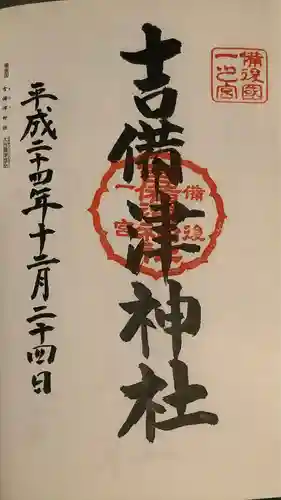 備後國
一之宮
吉備津神社
備後
一宮
平成二十四年十二月二十四日